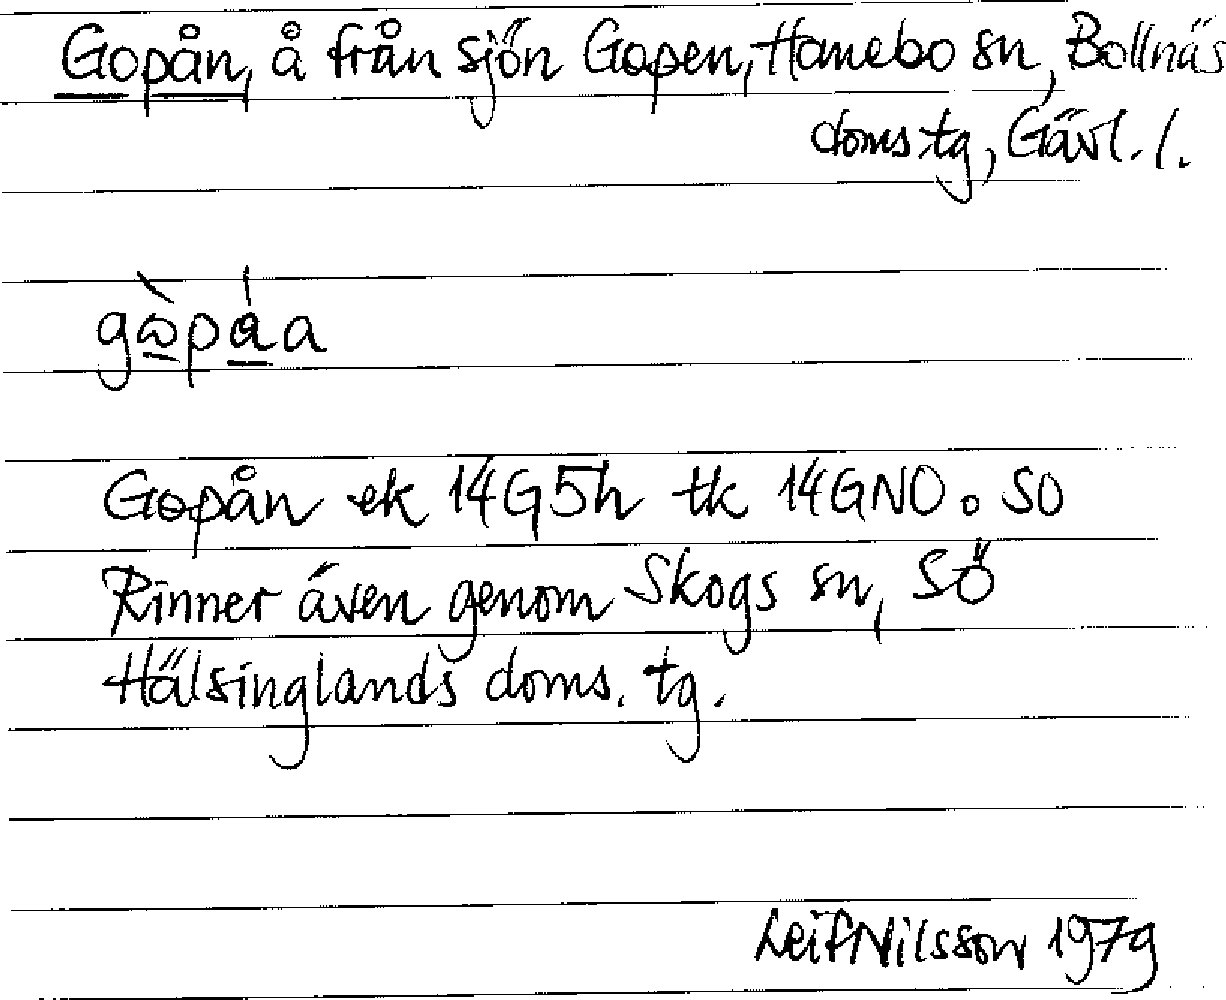 Gopån, å från sjön Gopen, Hanebo sn, Bollnäs
doms tg, Gävl. l.
gɷ̀páa
Gopån ek 14G5h tk 14GNO o SO
Rinner även genom Skogs sn, SÖ
Hälsinglands doms. tg.
Leif Nilsson 1979